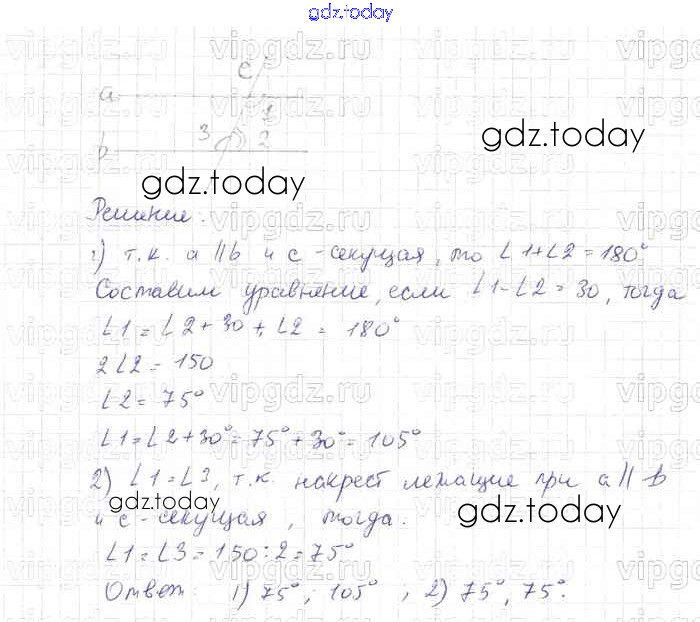 gdz.today
vipgdz.ru vipgdz.ru vipgdz.ru
c
a
1
gdz.today
3 2
b
gdz.today
Решение:
1) т.к. a || b и c - секущая, то ∠1+∠2=180°
Составим уравнение, если ∠1-∠2=30, тогда
∠1=∠2+30+∠2 = 180°
2∠2=150
∠2=75°
∠1=∠2+30°=75°+30°=105°
2) ∠1=∠3, т.к. накрест лежащие при a || b
gdz.today
и c - секущая, тогда:
gdz.today
∠1=∠3=150:2=75°
Ответ: 1) 75°; 105°; 2) 75°, 75°.